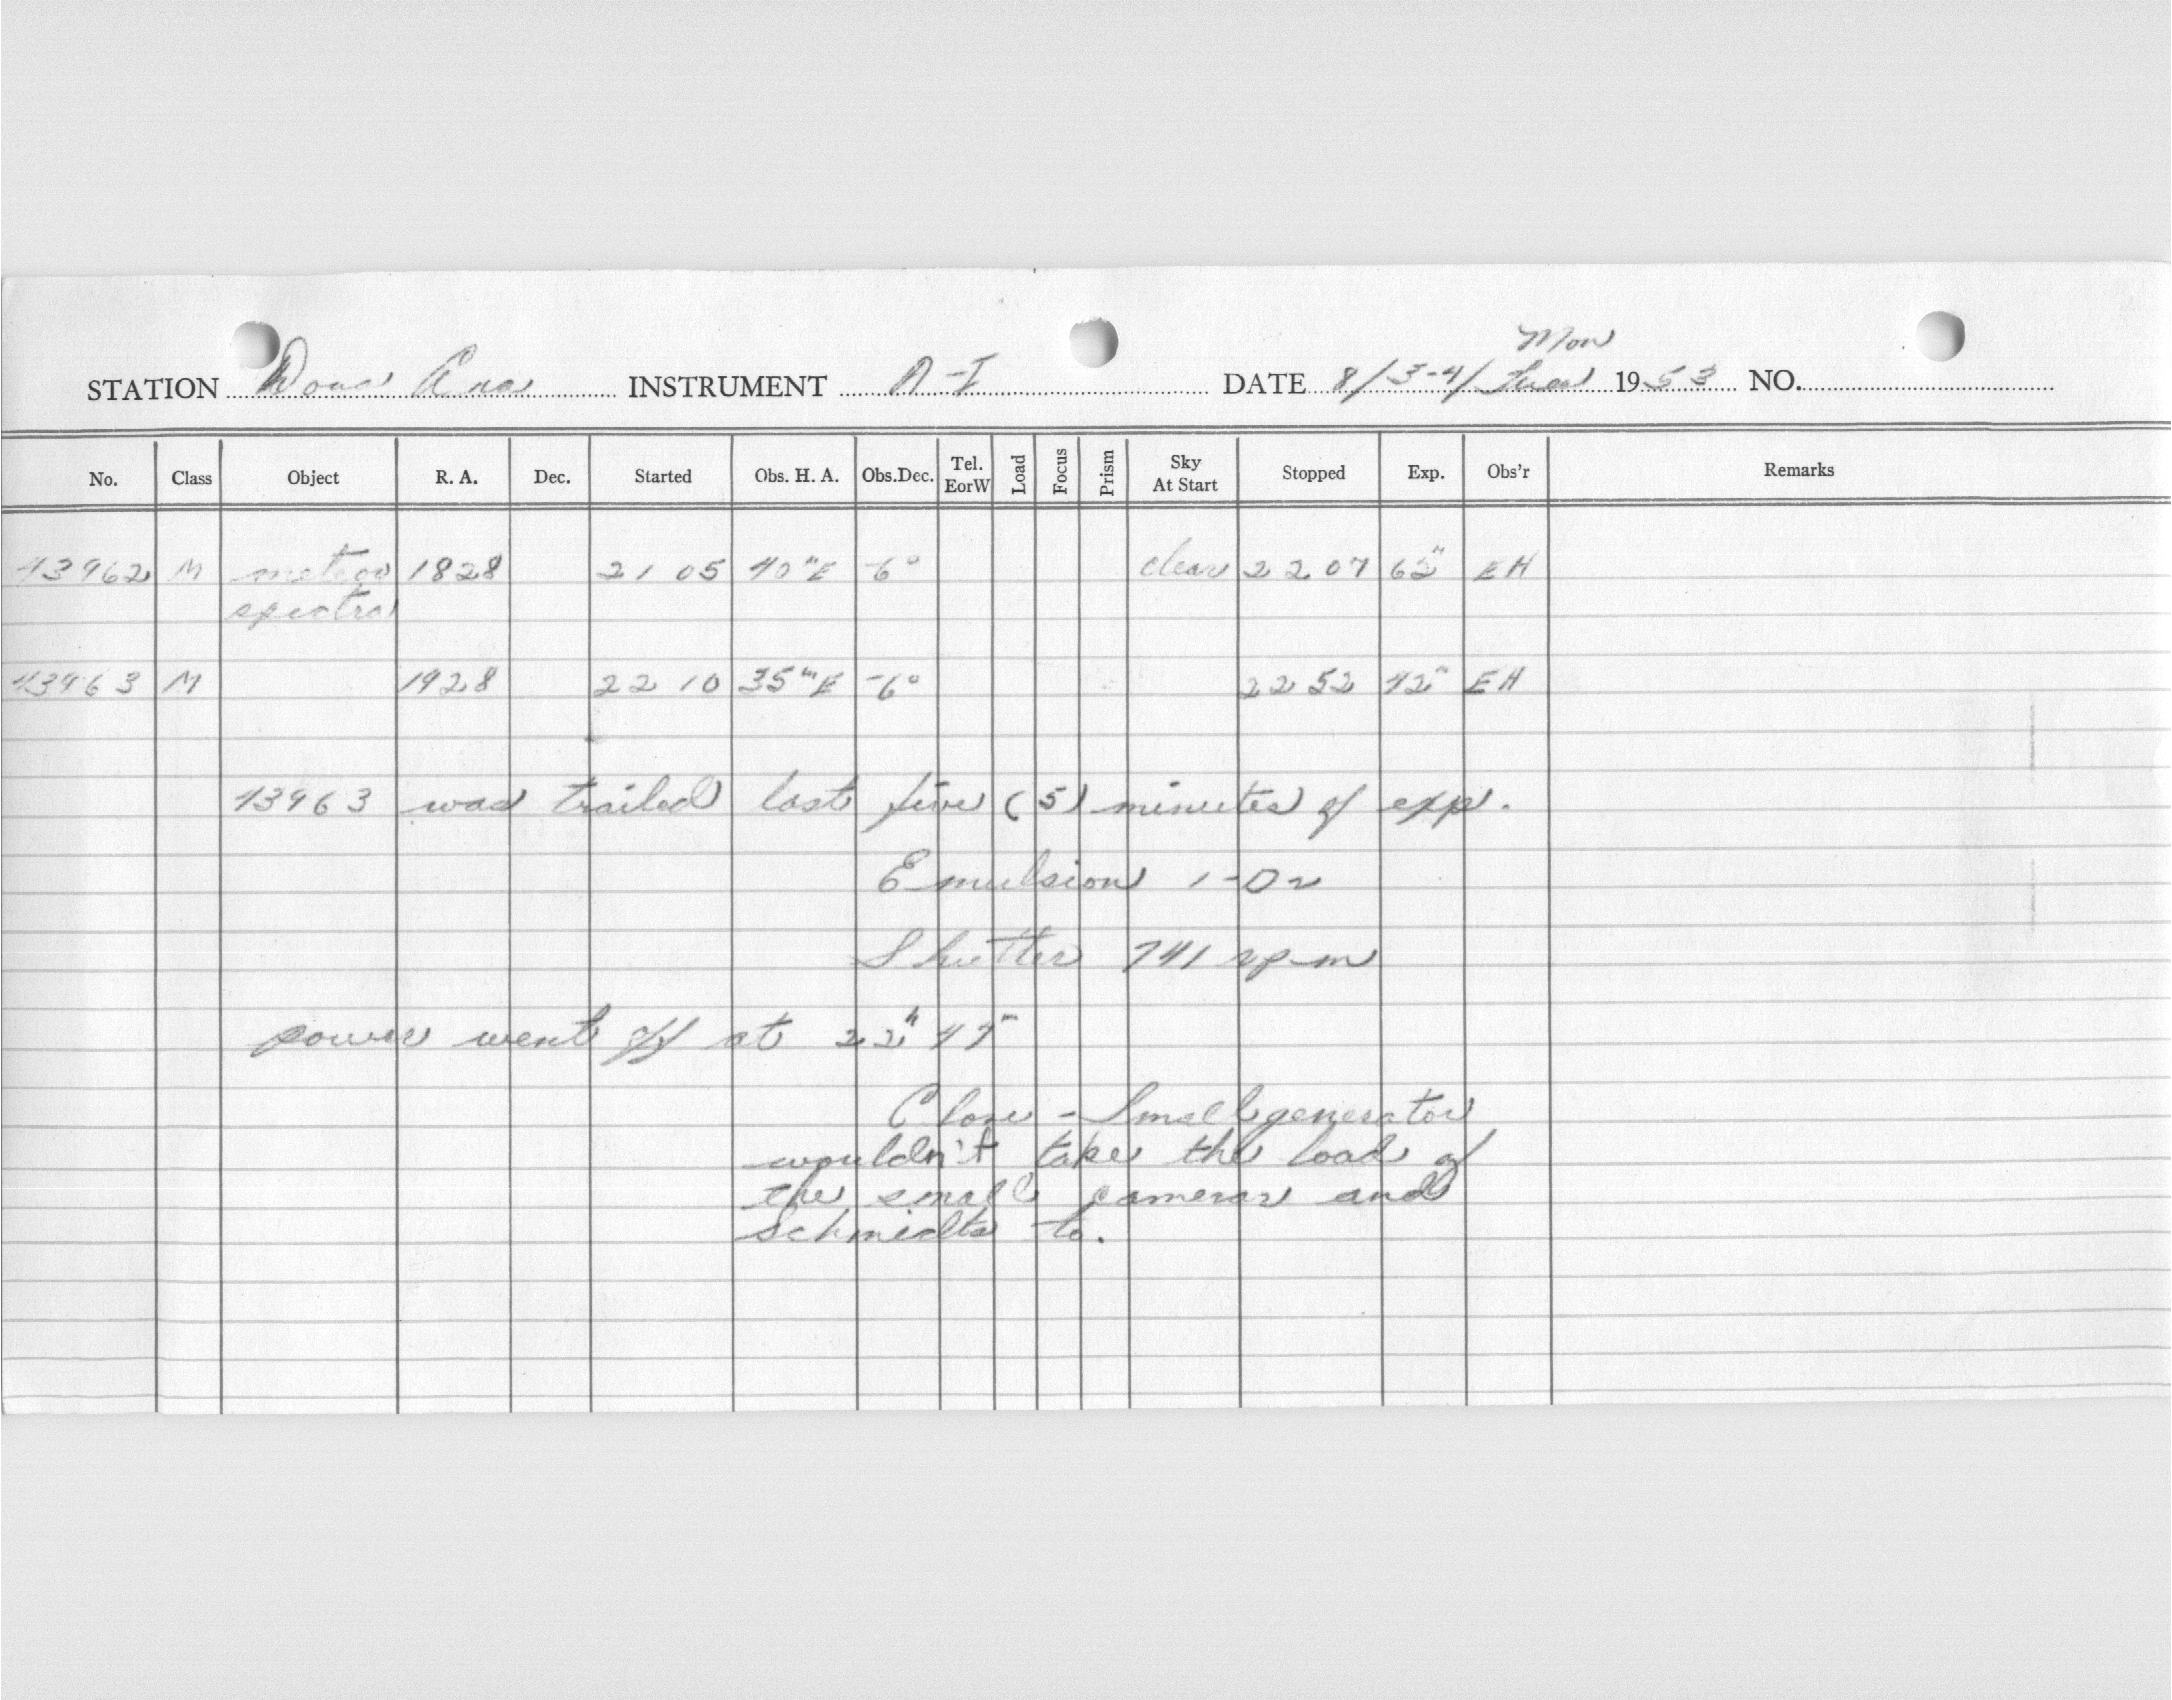 Mon
STATION Dona Ana INSTRUMENT A-I DATE 8/3-4/Tues 1953 NO.
No. Class Object R. A. Dec. Started Obs. H. A. Obs.Dec. Tel. EorW Load Focus Prism Sky At Start Stopped Exp. Obs'r Remarks
13962 M meteor 1828 21 05 40ᵐE -6° clear 22 07 62ᵐ EH
spectra
13963 M 1928 22 10 35ᵐE -6° 22 52 42ᵐ EH
13963 was trailed last five (5) minutes of exp.
Emulsion 1-02
Shutter 741 rpm
power went off at 22ʰ 47ᵐ
Close - Small generator
wouldn't take the load of
the small cameras and
Schmidts to.